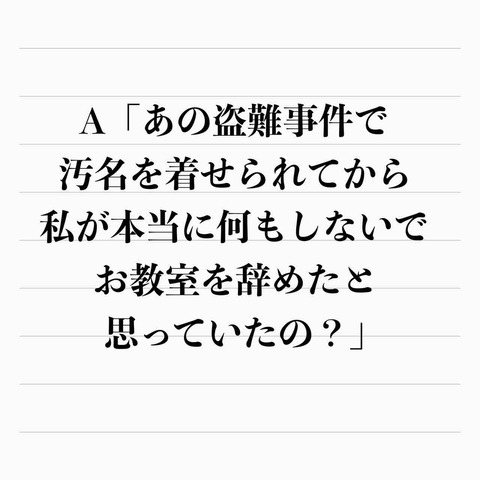 A「あの盗難事件で
汚名を着せられてから
私が本当に何もしないで
お教室を辞めたと
思っていたの？」